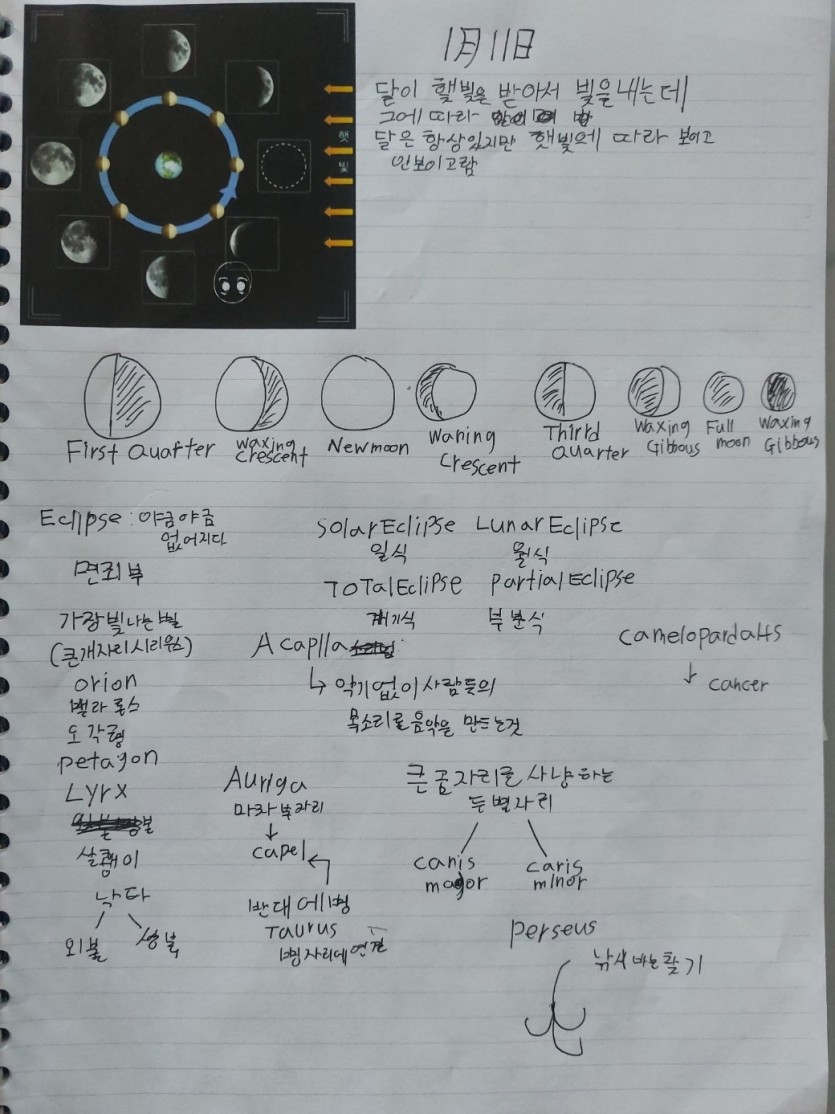 1月11日
달이 햇빛을 받아서 빛을 내는데
그에 따라
달은 항상있지만 햇빛에 따라 보이고
안보이고함
햇빛
First Quarter
Waxing Crescent
New moon
Waning Crescent
Thirrd Quarter
Waxing Gibbous
Full moon
Waxing Gibbous
Eclipse: 야금야금
없어지다
면죄부
Solar Eclipse
일식
Lunar Eclipse
월식
Total Eclipse
개기식
Partial Eclipse
부분식
가장 빛나는 별
(큰개자리 시리우스)
Acaplla
↳ 악기없이 사람들의
목소리로 음악을 만드는것
camelopardalis
↓ cancer
orion
벨라
오각형
petagon
Lyrx
살쾡이
낙타
외봉
쌍봉
Auriga
마차부자리
↓
capel
반대
Taurus
연결
큰곰자리를 사냥하는
두 별자리
canis
major
caris
minor
perseus
낚시바늘